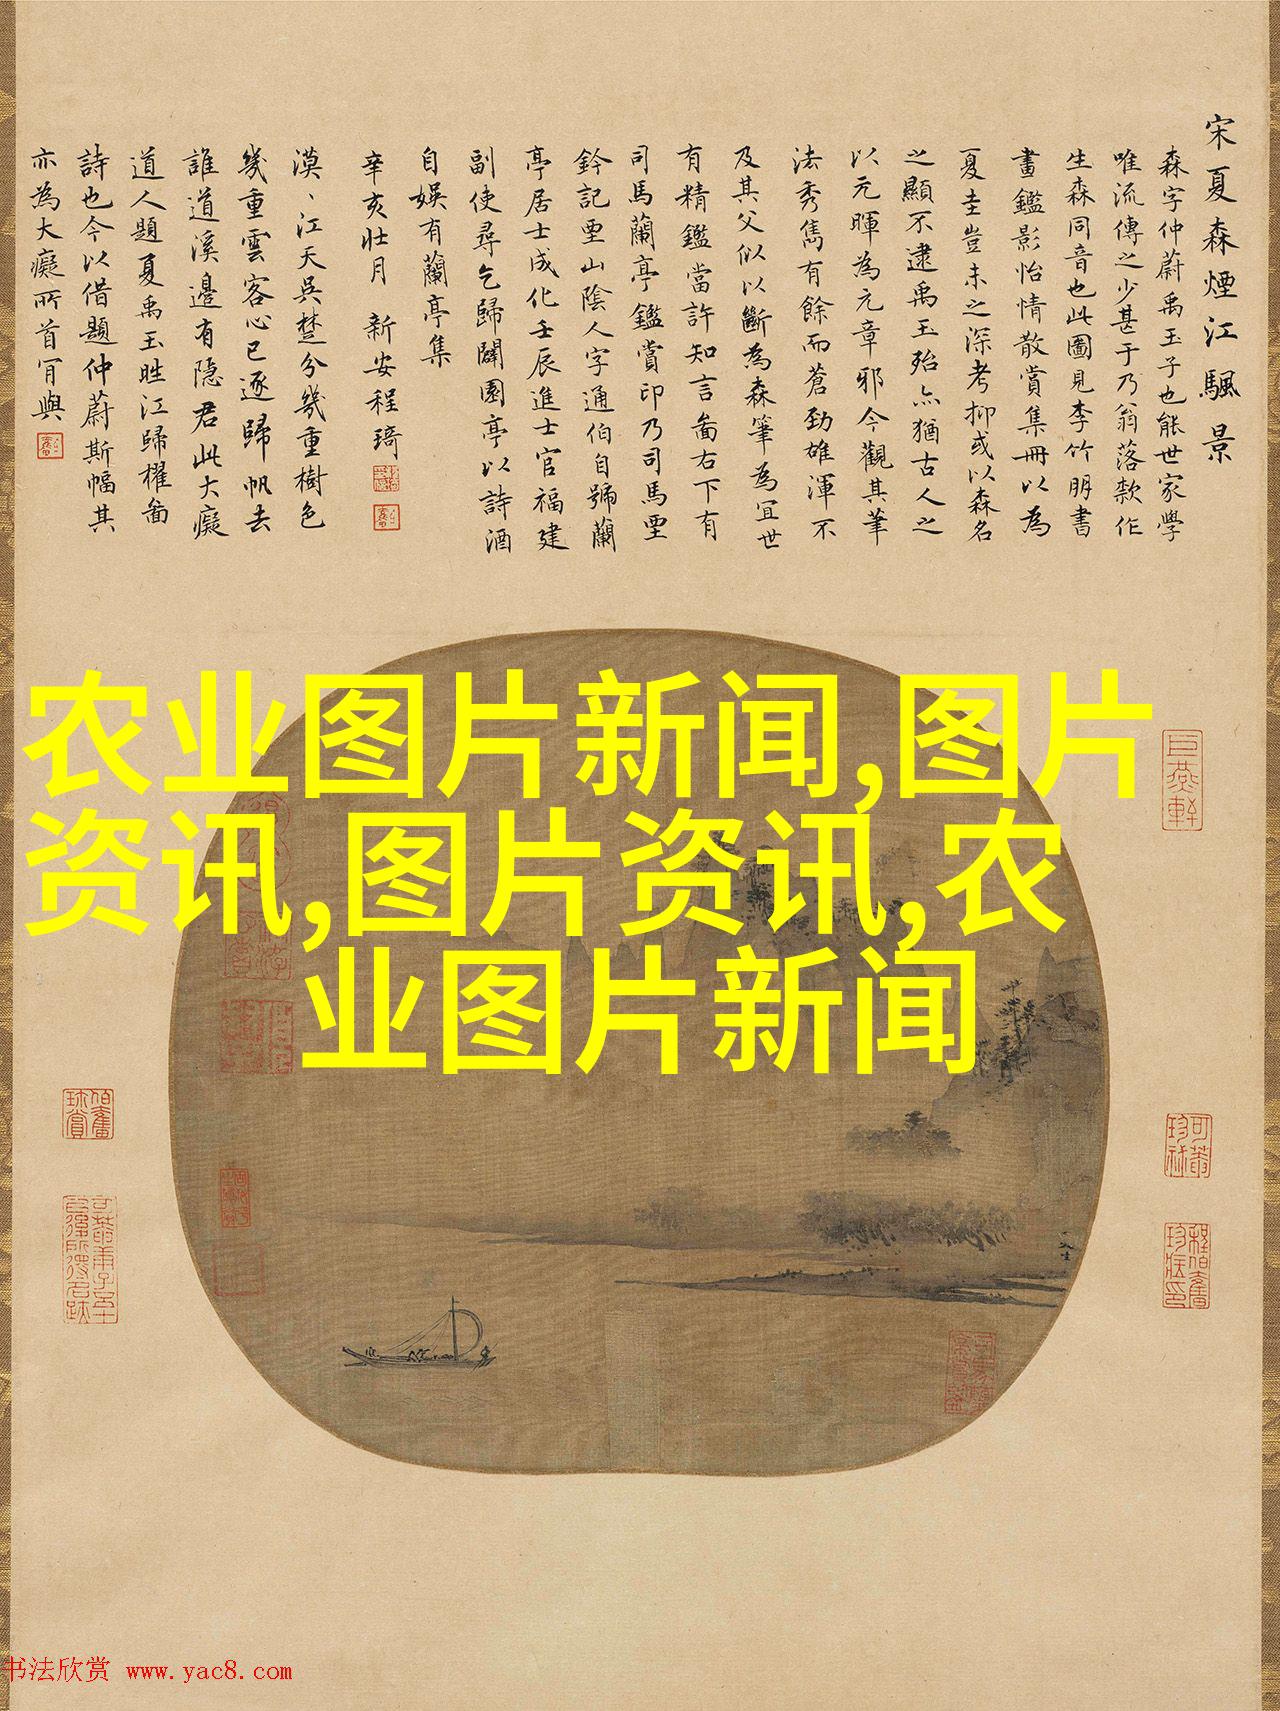 宋夏森煙江騷景
森字仲蔚禹玉子也能世家學
唯流傳之少甚于乃翁落款作
生森同音也此圖見李竹朋書
畫鑑影怡情散賞集冊以為
夏圭豈未之深考抑或以森名
之顯不逮禹玉殆亦猶古人之
以元暉為元章邪今觀其筆
法秀雋有餘而蒼勁雄渾不
及其父似以斷為森筆為宜世
有精鑑當許知言畫右下有
司馬蘭亭鑑賞印乃司馬垔
鈐記垔山陰人字通伯自號蘭
亭居士成化壬辰進士官福建
副使尋乞歸闢園亭以詩酒
自娛有蘭亭集
辛亥壯月 新安程琦
漠、江天吳楚分幾重樹色
幾重雲客心已逐歸帆去
誰道溪邊有隱君此大癡
道人題夏禹玉晴江歸櫂畫
詩也今以借題仲蔚斯幅其
亦為大癡所首肯與
农业图片新闻,图片
资讯,图片资讯,农
业图片新闻
书法欣赏 www.yac8.com